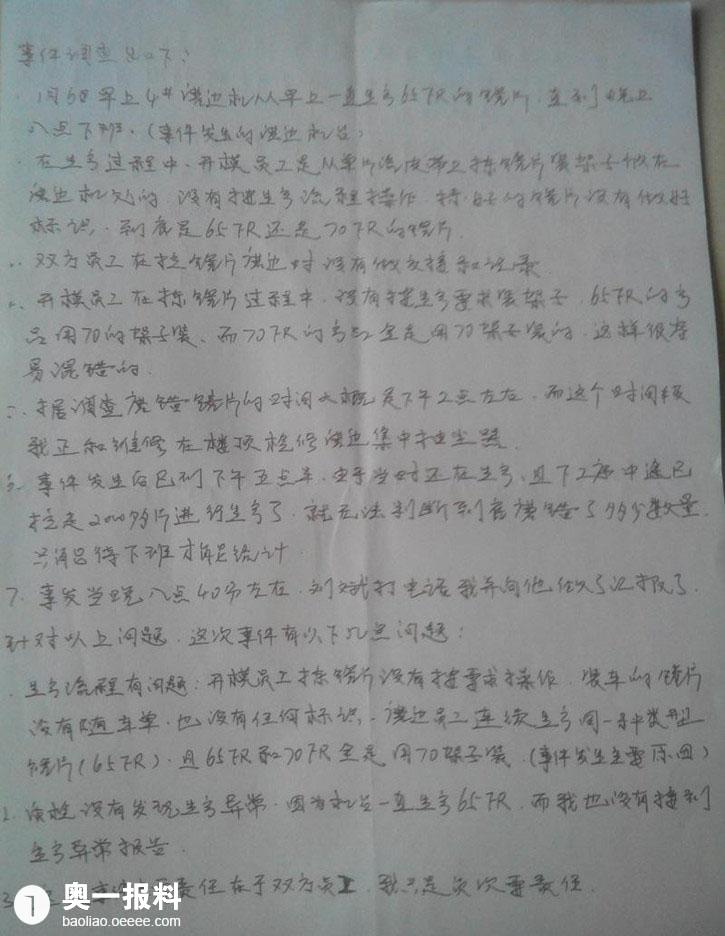 事件调查如下:
1月6日早上4#磨边机从早上一直生产65TR的镜片,直到晚上
八点下班。(事件发生的磨边机台)
在生产过程中,开模员工是从单片流皮带上捡镜片装架子放在
磨边机处的,没有按生产流程操作,捡好的镜片没有做好
标识,到底是65TR还是70TR的镜片.
双方员工在捡镜片磨边时没有做交接和记录
开模员工在捡镜片过程中,没有按生产要求装架子,65TR的产
品用70的架子装、而70TR的产品全是用70架子装的,这样很容
易混错的.
据调查磨错镜片的时间大概是下午2点左右,而这个时间段
我正和维修在楼顶检修磨边集中抽尘器.
事件发生后已到下午五点半,由于当时还在生产,且下工序中途已
拉走2000多片进行生产了,就无法判断到底磨错了多少数量,
只有等待下班才能统计.
7.事发当晚八点40分左右,刘斌打电话我并向他做了汇报了.
针对以上问题,这次事件有以下几点问题:
生产流程有问题:开模员工捡镜片没有按要求操作,装车的镜片
没有随车单,也没有任何标识.磨边员工连续生产同一种类型
镜片(65TR),且65TR和70TR全是用70架子装.(事件发生主要原因)
2.质检没有发现生产异常,因为机台一直生产65TR,而我也没有接到
生产异常报告.
3 责任在于双方员工,我只是负次要责任.
奥一报料
baoliao.oeeee.com